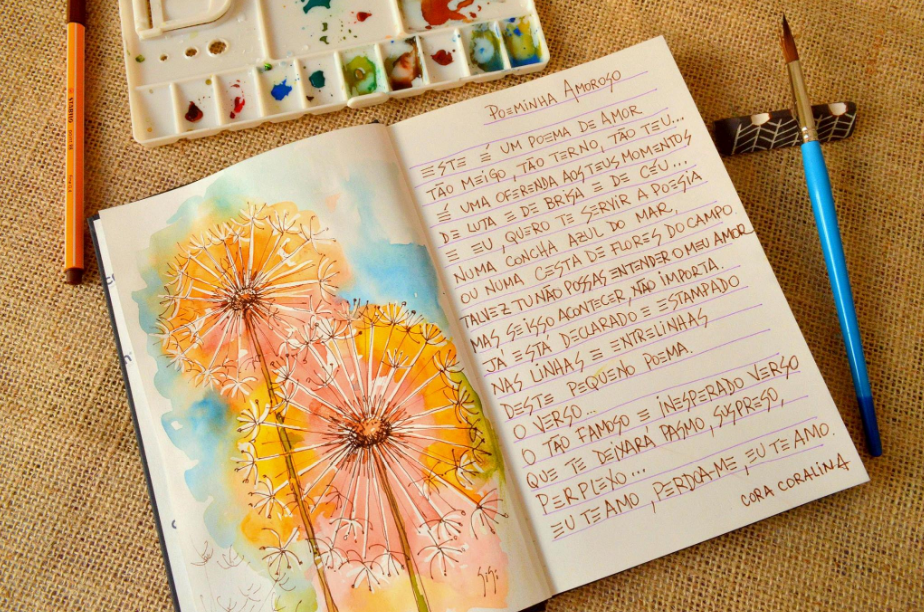 POEMINHA AMOROSO
ESTE É UM POEMA DE AMOR
TÃO MEIGO, TÃO TERNO, TÃO TEU...
É UMA OFERENDA AOS TEUS MOMENTOS
DE LUTA E DE BRISA E DE CÉU...
E EU QUERO TE SERVIR A POESIA
NUMA CONCHA AZUL DO MAR,
OU NUMA CESTA DE FLORES DO CAMPO.
TALVEZ TU NÃO POSSAS ENTENDER O MEU AMOR
MAS SE ISSO ACONTECER, NÃO IMPORTA.
JÁ ESTÁ DECLARADO E ESTAMPADO
NAS LINHAS E ENTRELINHAS
DESTE PEQUENO POEMA.
O VERSO...
O TÃO FAMOSO E INESPERADO VERSO
QUE TE DEIXARÁ PASMO, SUSPRESO,
PERPLEXO...
EU TE AMO, PERDOA-ME, EU TE AMO.
CORA CORALINA